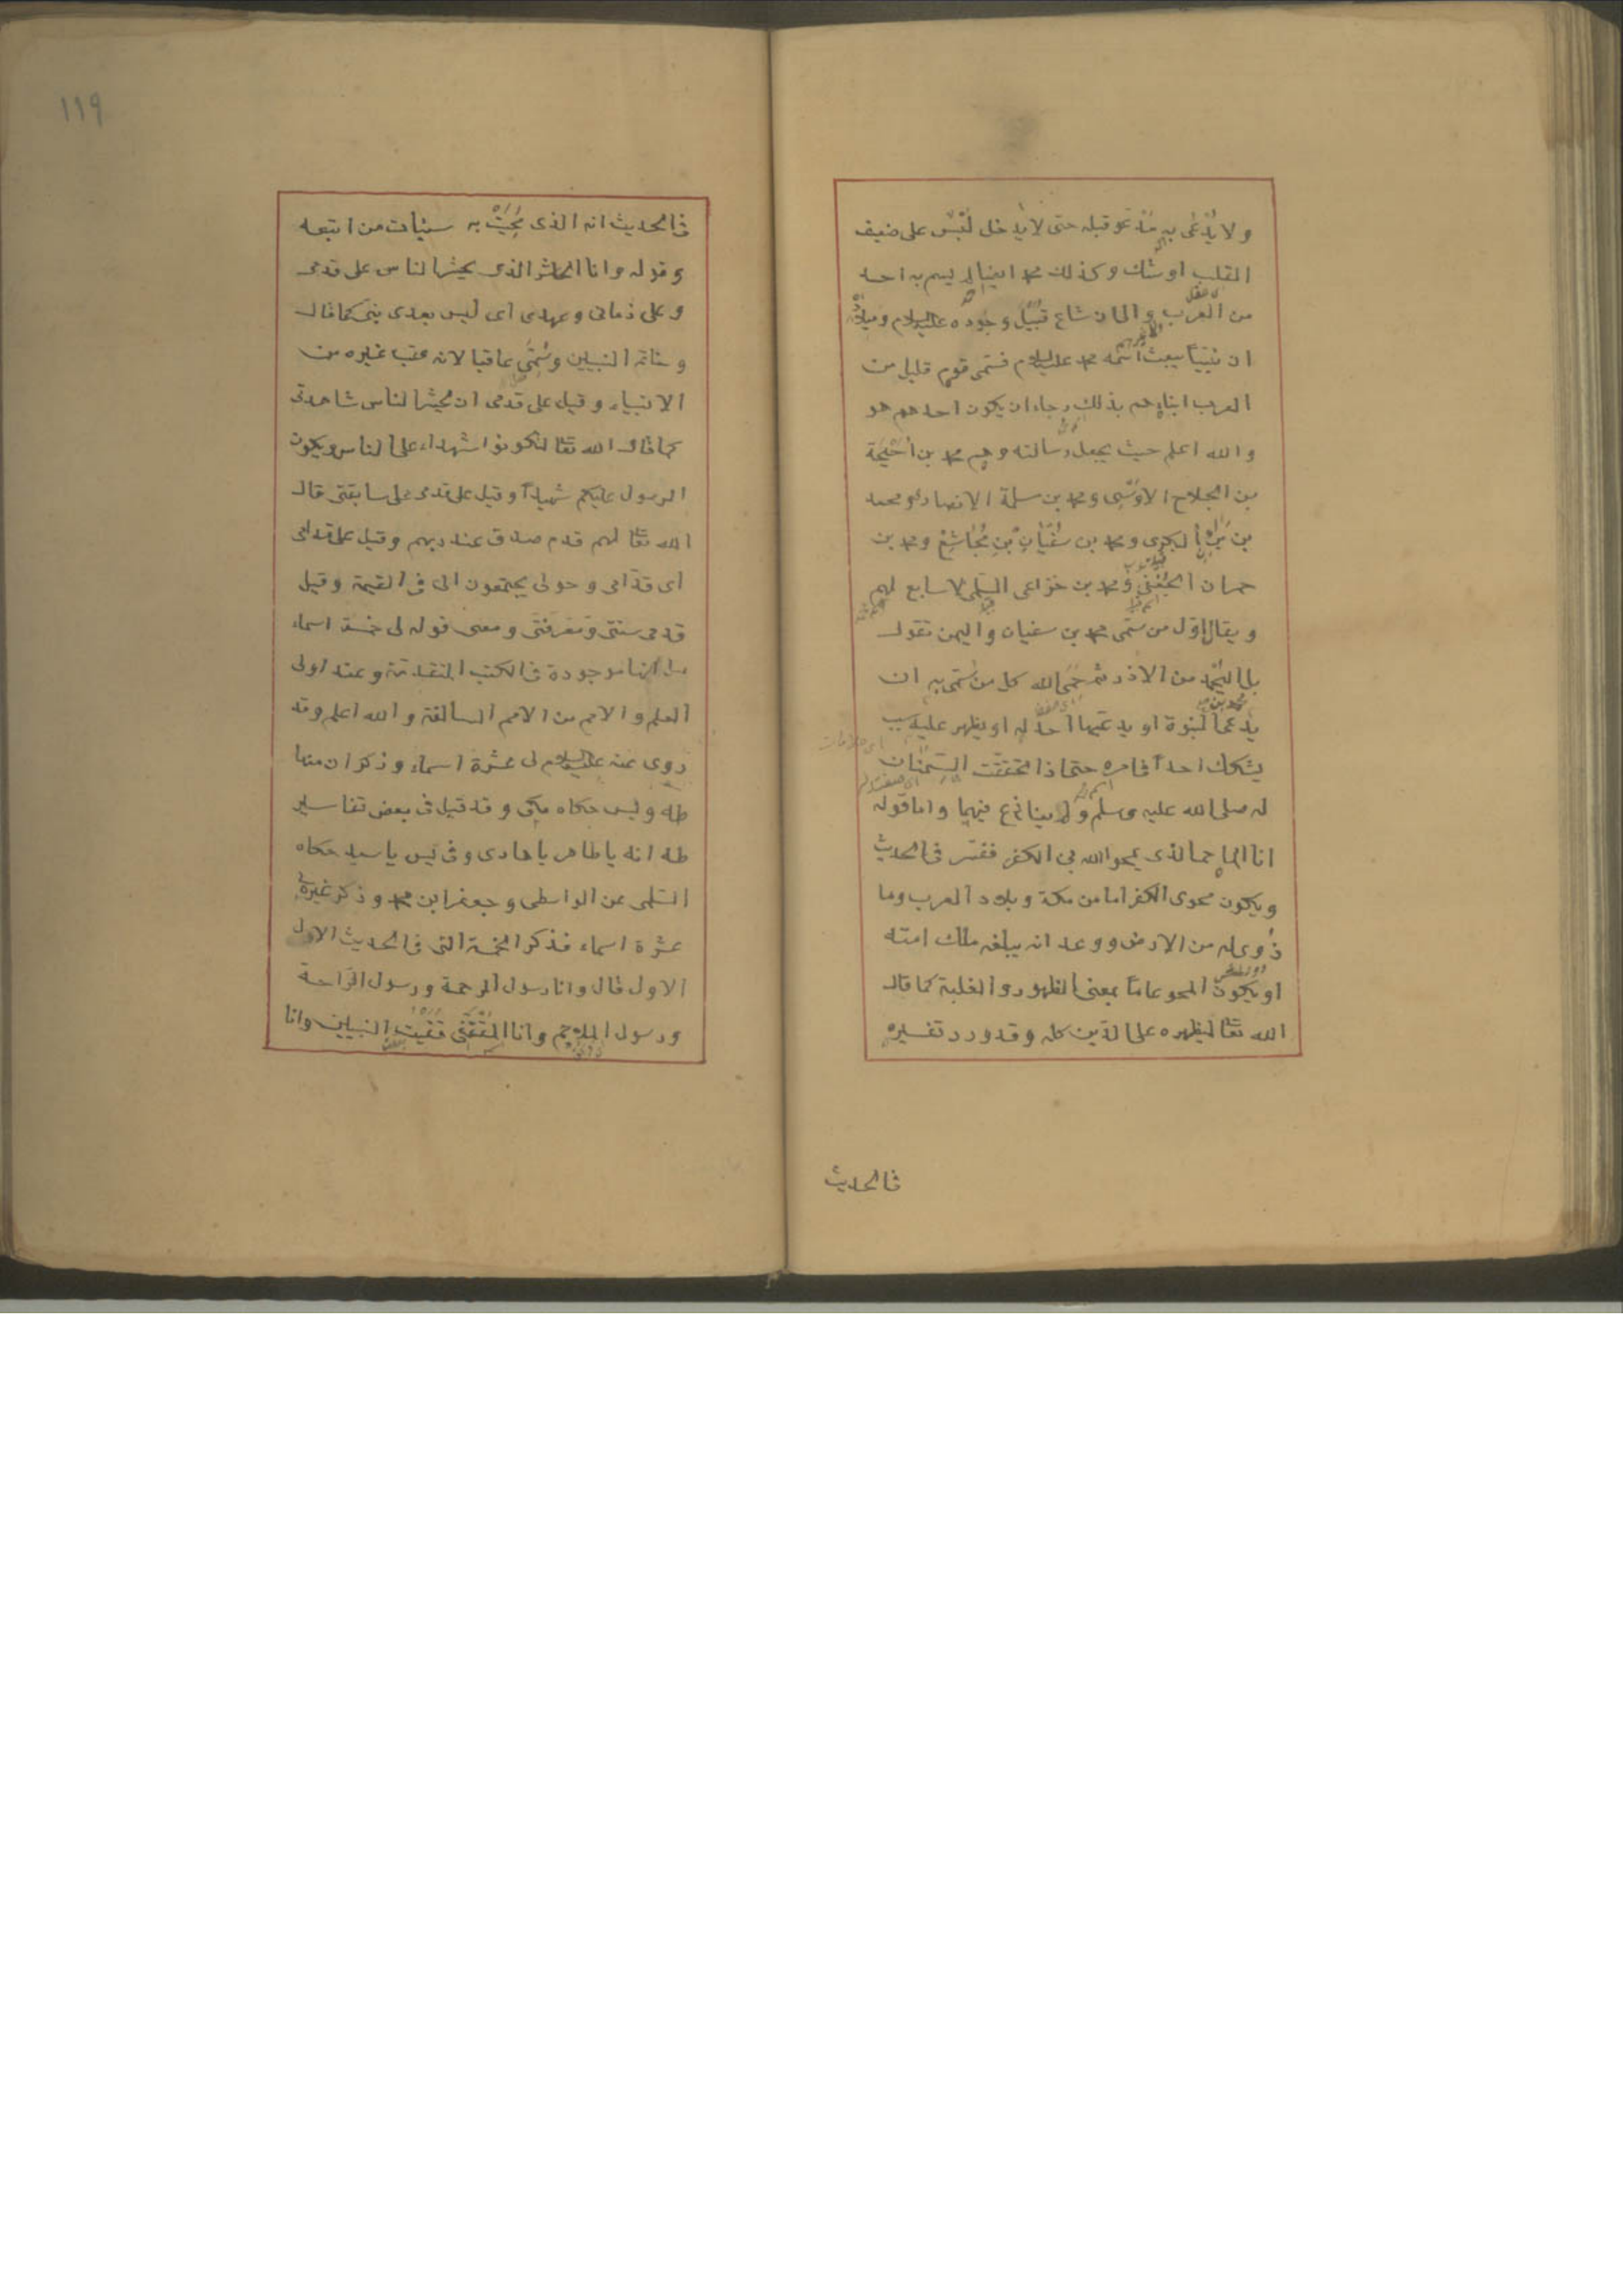 ولا يُدْعَى به مَدْعو قبله حتى لا يدخل لَبْس على ضعيف
القلب او شك وكذلك محمد ايضا لم يسم به احد
من العرب والى ان شاع قُبَيْل وجوده عليه السلام وميلاده
ان نبيًا يبعث اسمه محمد عليه السلام فسمى قوم قليل من
العرب ابناءهم بذلك رجاء ان يكون احدهم هو
والله اعلم حيث يجعل رسالته وهم محمد بن أُحَيْحَة
بن الجلاح الاوسى ومحمد بن سلمة الانصارى ومحمد
بن بَرَاء البكرى ومحمد بن سُفْيَان بْنِ مُجَاشِعْ ومحمد بن
حمران الجُعْفى ومحمد بن خزاعى السلمى لا سابع لهم
ويقال اوّل من سمّى محمد بن سفيان واليمن تقول
بل محمد بن اليُحْمِد من الازد ثم حَمَى الله كل من سُمّى به ان
يدعى النبوة او يدعيها احد له او يظهر عليه سبب
يشكك احدا فى امره حتى اذا تحققت السِّمَتَان
له صلى الله عليه وسلم ولم ينازع فيهما واما قوله
انا الماحى الذى يمحو الله بى الكفر ففسّر فى الحديث
ويكون محوى الكفر اما من مكة وبلاد العرب وما
زُوى له من الارض ووعد انه يبلغه ملك امته
او يكون المحو عامّا بمعنى الظهور والغلبة كما قال
الله تعا ليظهره على الدّين كله وقد ورد تفسيره
فى الحديث
١١٩
فى الحديث انه الذى مُحِيَتْ به سيئات من اتبعه
وقوله وانا الحاشر الذى يحشر الناس على قدمى
وعلى زمانى وعهدى اى ليس بعدى نبى كما قال
وخاتم النبيين وسُمّى عاقبا لانه عقب غيره من
الانبياء وقيل على قدمى ان يحشر الناس شاهدتى
كما قال الله تعا لتكونوا شهداء على الناس ويكون
الرسول عليكم شهيدًا وقيل على قدمى على سابقتى قال
الله تعا لهم قدم صدق عند ربهم وقيل على قدمى
اى قدّامى وحولى يجتمعون الى فى القيمة وقيل
قدمى سنتى ومعرفتى ومعنى قوله لى خمسة اسماء
انها موجودة فى الكتب المتقدمة وعند اولى
العلم والامم من الامم السالفة والله اعلم وقد
روى عنه عليه السلام لى عشرة اسماء وذكر ان منها
طه ويس حكاه مكى وقد قيل فى بعض تفاسير
طه انه يا طاهر يا هادى وفى يس يا سيد حكاه
السّلمى عن الواسطى وجعفر ابن محمد وذكر غيره لى
عشرة اسماء فذكر الخمسة التى فى الحديث الاول
الاول قال وانا رسول الرحمة ورسول الرّاحة
ورسول الملاحم وانا المُقَفّى قَفَّيْت النبيين وانا